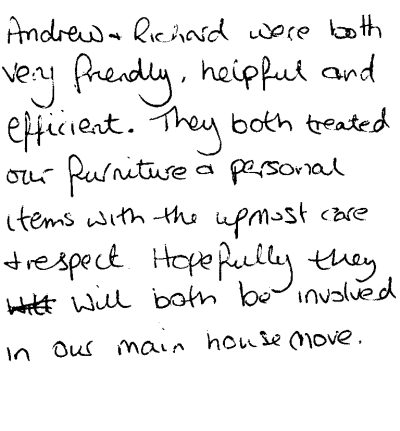 Andrew + Richard were both
very friendly, helpful and
efficient. They both treated
our furniture & personal
items with the upmost care
+ respect. Hopefully they
will both be involved
in our main house move.